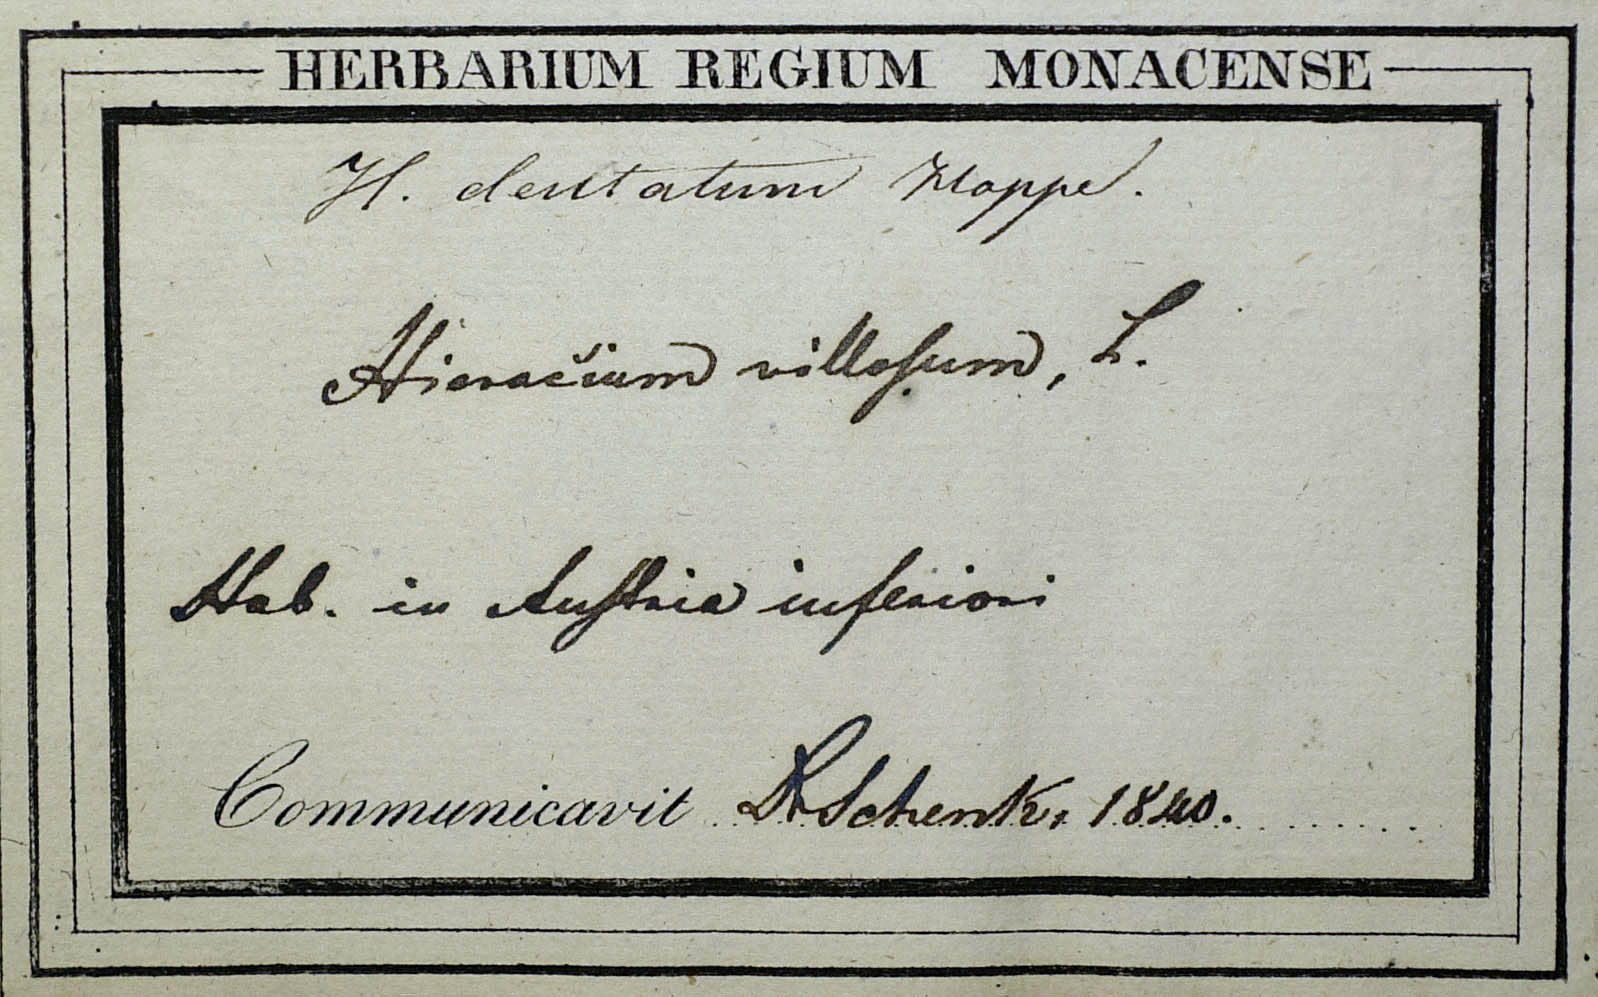 HERBARIUM REGIUM MONACENSE
H. dentatum Hoppe.
Hieracium villosum, L.
Hab. in Austria inferiori
Communicavit Dr Schenk, 1840.